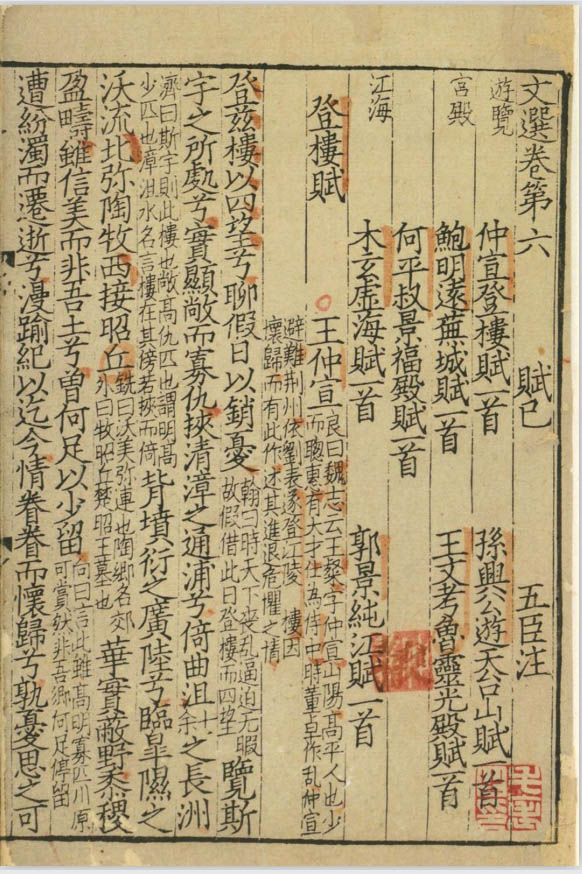 文選卷第六 賦已 五臣注
遊覽
仲宣登樓賦一首 孫興公遊天台山賦一首
宮殿
鮑明遠蕪城賦一首 王文考魯靈光殿賦一首
何平叔景福殿賦一首
江海
木玄虛海賦一首 郭景純江賦一首
登樓賦
王仲宣
良曰魏志云王粲字仲宣山陽高平人也少
而聰惠有大才仕為侍中時董卓作乱仲宣
避難荆州依劉表遂登江陵樓因
懷歸而有此作述其進退危懼之情
登兹樓以四望兮聊假日以銷憂
翰曰時天下丧乱逼迫无暇
故假借此日登樓而四望
覽斯
宇之所處兮實顯敞而寡仇挾清漳之通浦兮倚曲沮之長洲
濟曰斯宇則此樓也敞高仇匹也謂明高
少匹也漳沮水名言樓在其傍若挾而倚
背墳衍之廣陸兮臨臯隰之
沃流北弥陶牧西接昭丘
銑曰沃美弥連也陶鄉名郊
外曰牧昭丘楚昭王墓也
華實蔽野黍稷
盈疇雖信美而非吾土兮曾何足以少留
向曰言此雖高明寡匹川原
可賞然非吾鄉何足停留
遭紛濁而遷逝兮漫踰紀以迄今情眷眷而懷歸兮孰憂思之可